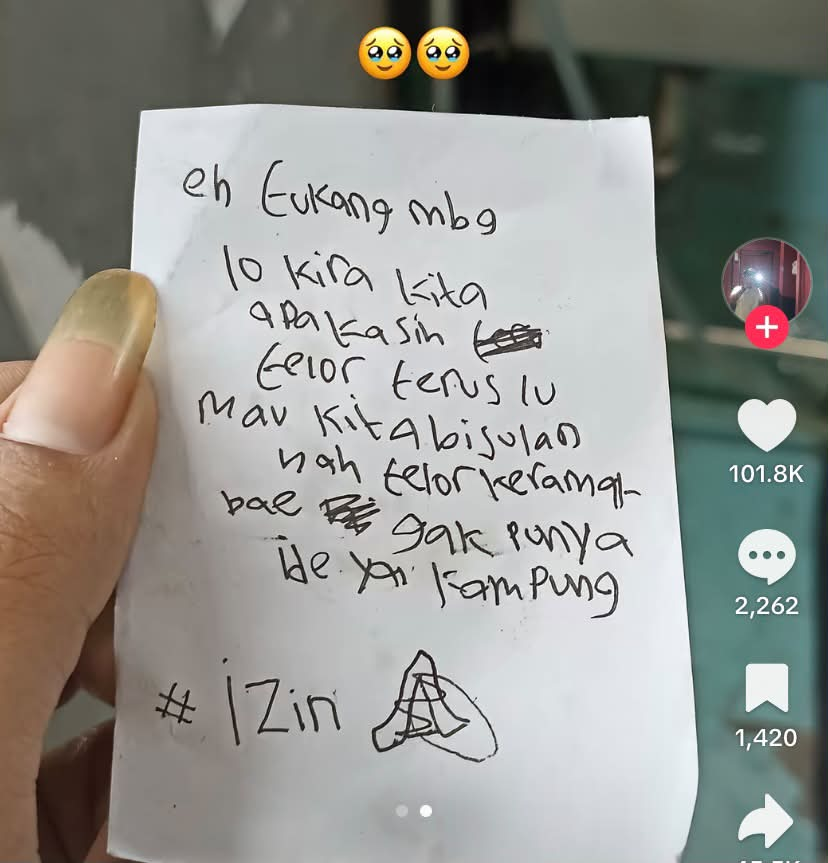 eh tukang mbg
lo kira kita
apa kasih
telor terus lu
mau kita bisulan
nah telor keramat
bae gak punya
ide ya kampung
# izin
101.8K
2,262
1,420